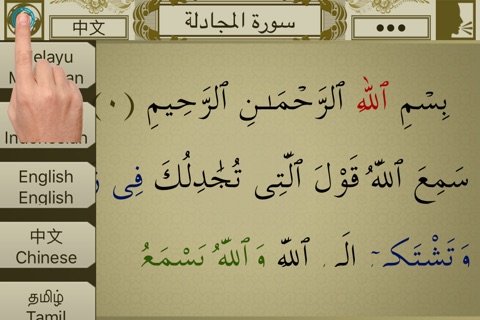 中文
سورة المجادلة
•••
Melayu
English
English
中文
Chinese
தமிழ்
Tamil
بِسْمِ ٱللَّهِ ٱلرَّحْمَـٰنِ ٱلرَّحِيمِ (٠)
سَمِعَ ٱللَّهُ قَوْلَ ٱلَّتِى تُجَٰدِلُكَ فِى
وَتَشْتَكِىٓ إِلَى ٱللَّهِ وَٱللَّهُ يَسْمَعُ